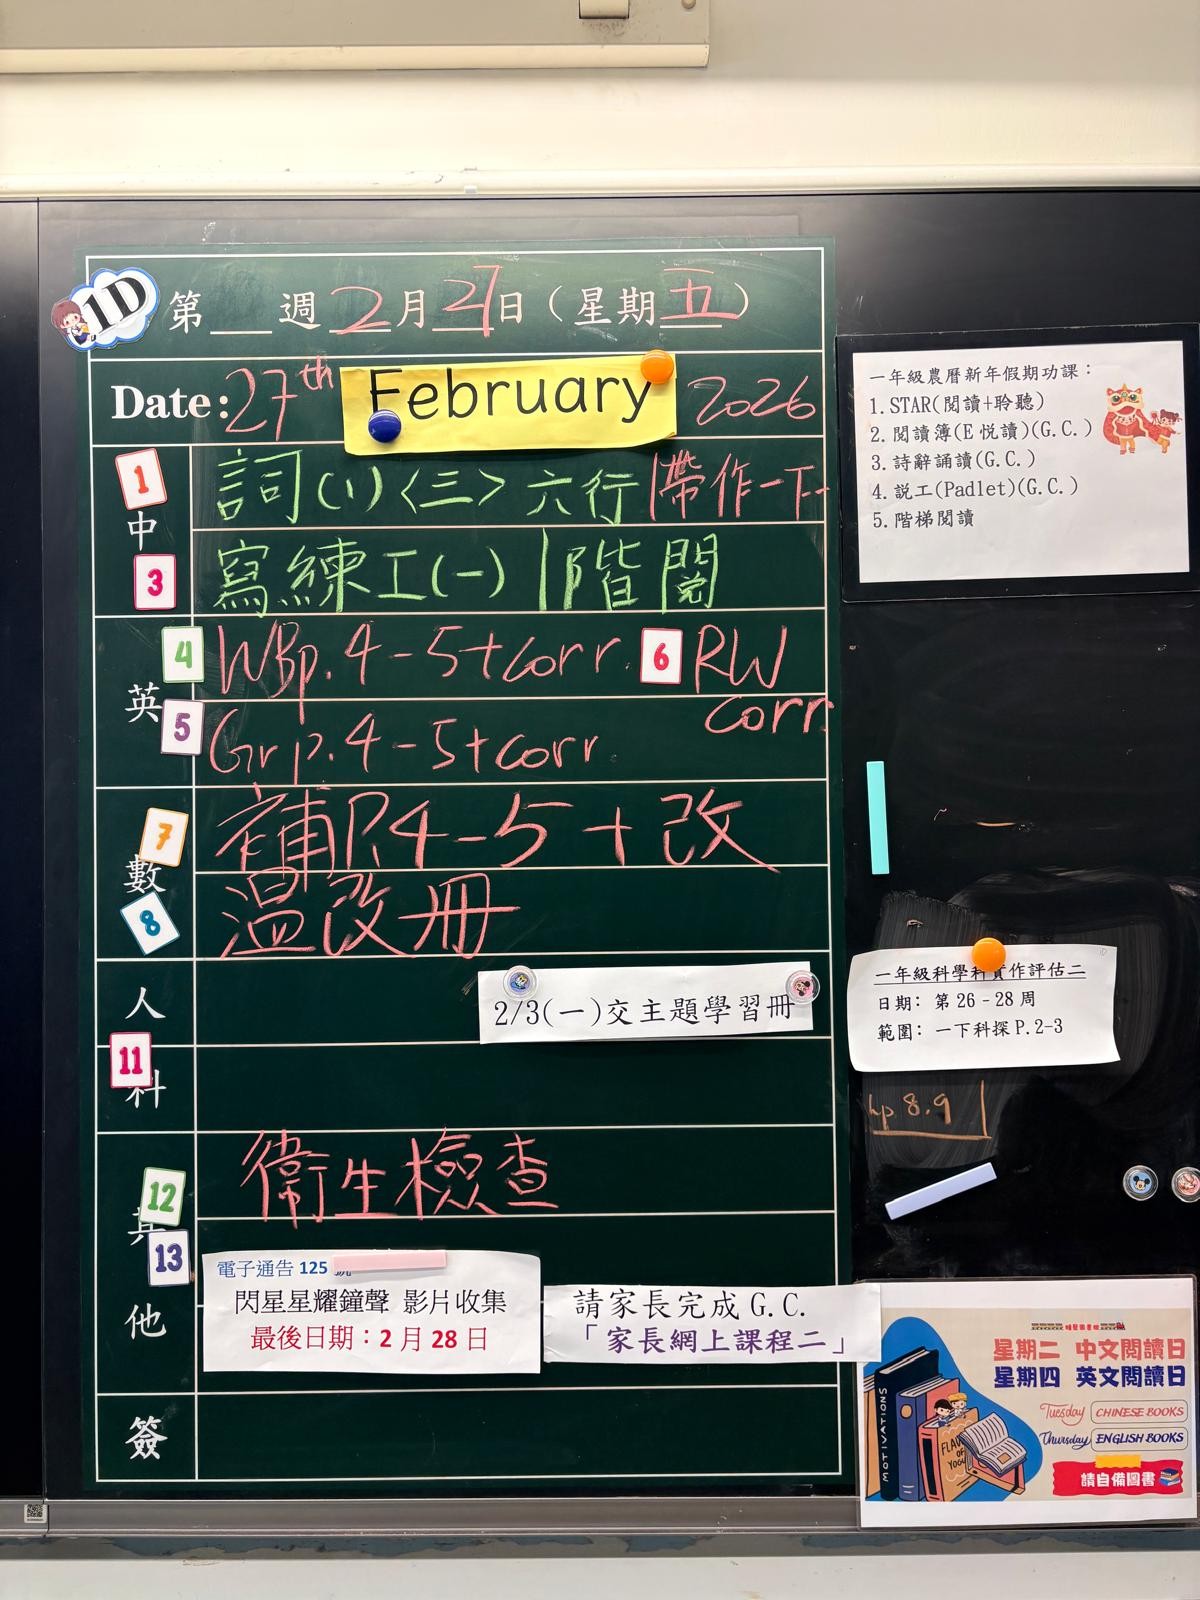 1D
第__週 2月27日（星期五）
Date: 27th February 2026
1
中
詞(1)<三>六行|帶作一下
3
寫練工(一) |階閱
英
4
WBp.4-5+corr.
6
RW corr.
5
Gr p.4-5+corr.
數
7
補P.4-5+改
8
溫改冊
人
2/3(一)交主題學習冊
11
科
其他
12
衛生檢查
13
電子通告 125 號
閃星星耀鐘聲 影片收集
最後日期：2 月 28 日
請家長完成 G.C.
「家長網上課程二」
簽
一年級農曆新年假期功課：
1.STAR(閱讀+聆聽)
2.閱讀簿(E 悅讀)(G.C.)
3.詩辭誦讀(G.C.)
4.說工(Padlet)(G.C.)
5.階梯閱讀
一年級科學科實作評估二
日期： 第 26-28 周
範圍： 一下科探 P.2-3
p 8.9
星期二 中文閱讀日
星期四 英文閱讀日
Tuesday CHINESE BOOKS
Thursday ENGLISH BOOKS
請自備圖書
MOTIVATIONS